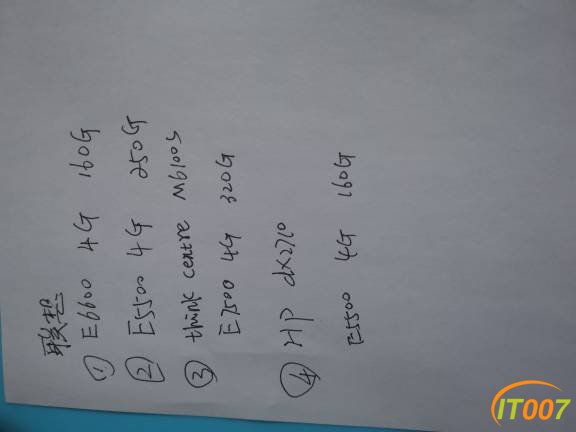 联想
① E6600 4G 160G
② E5500 4G 250G
③ think centre M6100S
E7500 4G 320G
④ HP dx2710
E5500 4G 160G
IT007